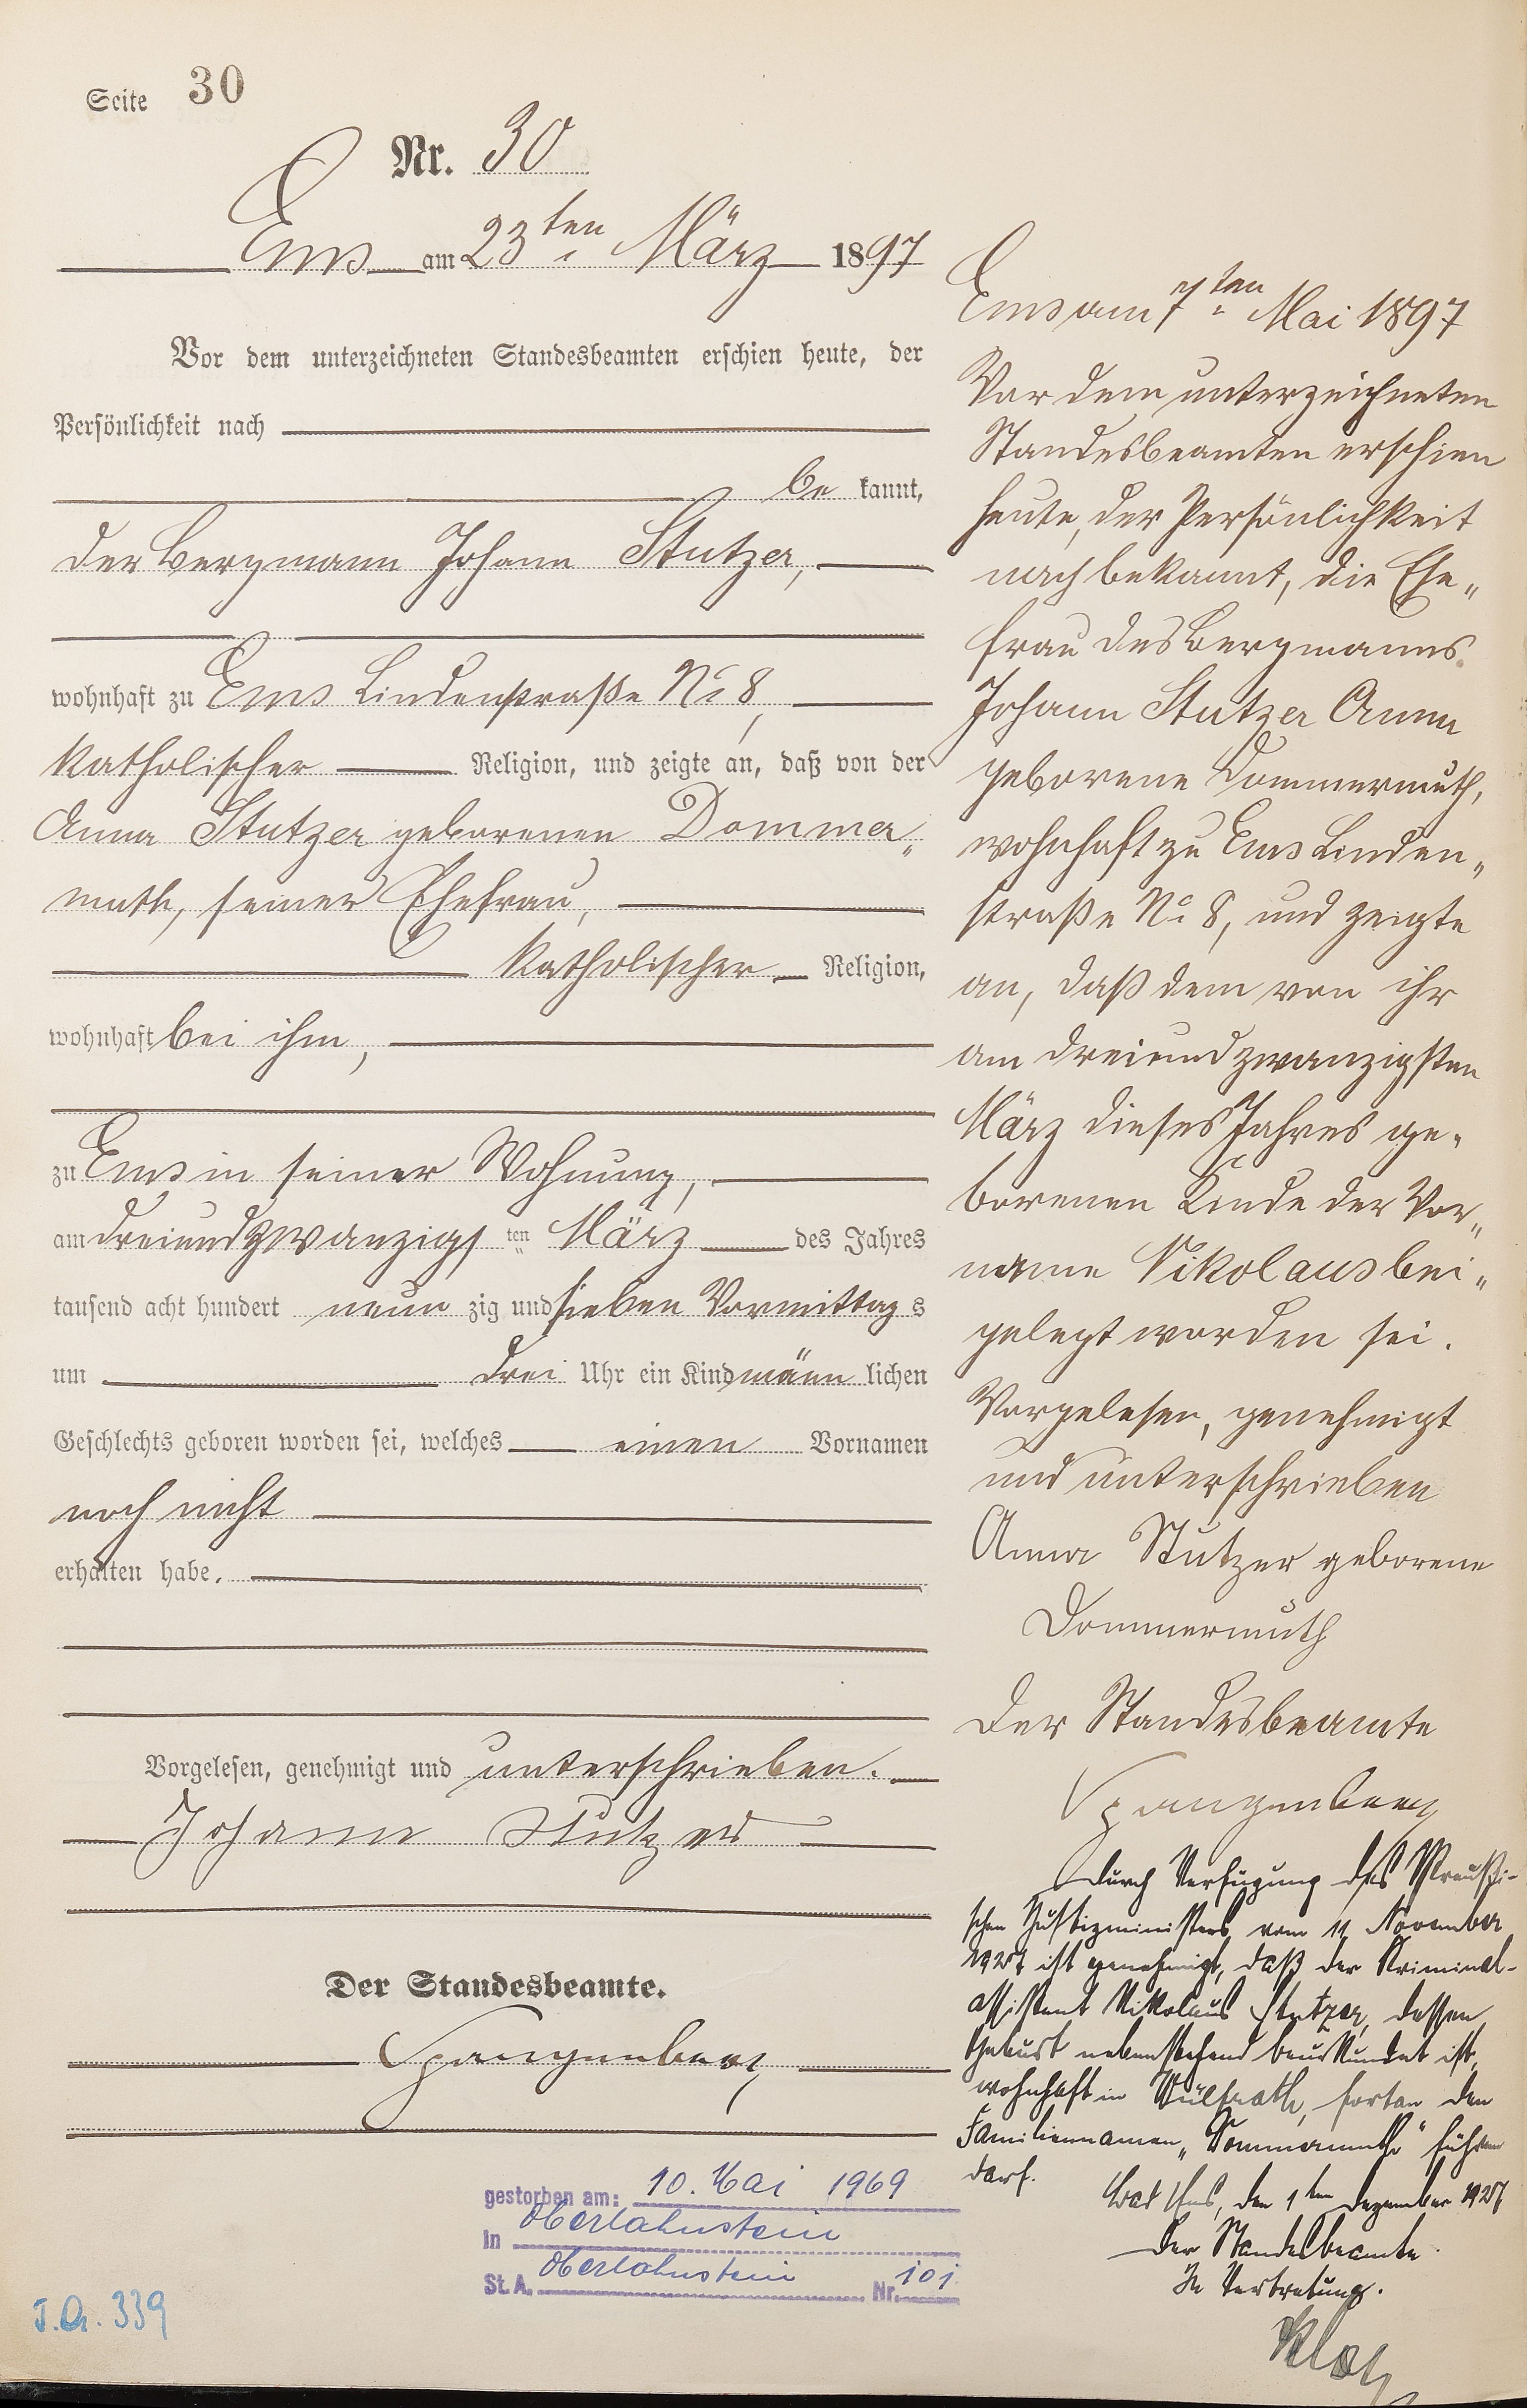 Seite 30
Nr. 30
Ems am 23ten März 1897
Vor dem unterzeichneten Standesbeamten erschien heute, der
Persönlichkeit nach
be kannt,
der Bergmann Johann Stutzer,
wohnhaft zu Ems Lindenstraße No 8,
katholischer Religion, und zeigte an, daß von der
Anna Stutzer geborenen Dommer„
muth, seiner Ehefrau,
katholischer Religion,
wohnhaft bei ihm,
zu Ems in seiner Wohnung,
am dreiundzwanzigs ten März des Jahres
tausend acht hundert neun zig und sieben Vormittag s
um drei Uhr ein Kind männ lichen
Geschlechts geboren worden sei, welches einen Vornamen
noch nicht
erhalten habe.
Vorgelesen, genehmigt und unterschrieben.
Johann Stutzer
Der Standesbeamte.
Spangenberg
gestorben am: 10. Mai 1969
In Oberlahnstein
St. A. Oberlahnstein Nr. 101
J.A. 339
Ems am 7ten Mai 1897
Vor dem unterzeichneten
Standesbeamten erschien
heute, der Persönlichkeit
nach bekannt, die Ehe„
frau des Bergmanns
Johann Stutzer Anna
geborene Dommermuth,
wohnhaft zu Ems Linden„
straße No 8, und zeigte
an, daß dem von ihr
am dreiundzwanzigsten
März dieses Jahres ge„
borenen Kinde der Vor„
name Nikolaus bei„
gelegt worden sei.
Vorgelesen, genehmigt
und unterschrieben
Anna Stutzer geborene
Dommermuth
Der Standesbeamte
Spangenberg
Durch Verfügung des Preußi-
schen Justizministers vom 11. November
1927 ist genehmigt, daß der Kriminal-
assistent Nikolaus Stutzer, dessen
Geburt nebenstehend beurkundet ist,
wohnhaft in Wülfrath, fortan den
Familiennamen „Dommermuth" führen
darf.
Bad Ems, den 1ten Dezember 1927
Der Standesbeamte
In Vertretung.